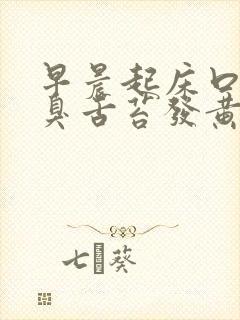 早晨起床口
臭舌苔發黃
七葵